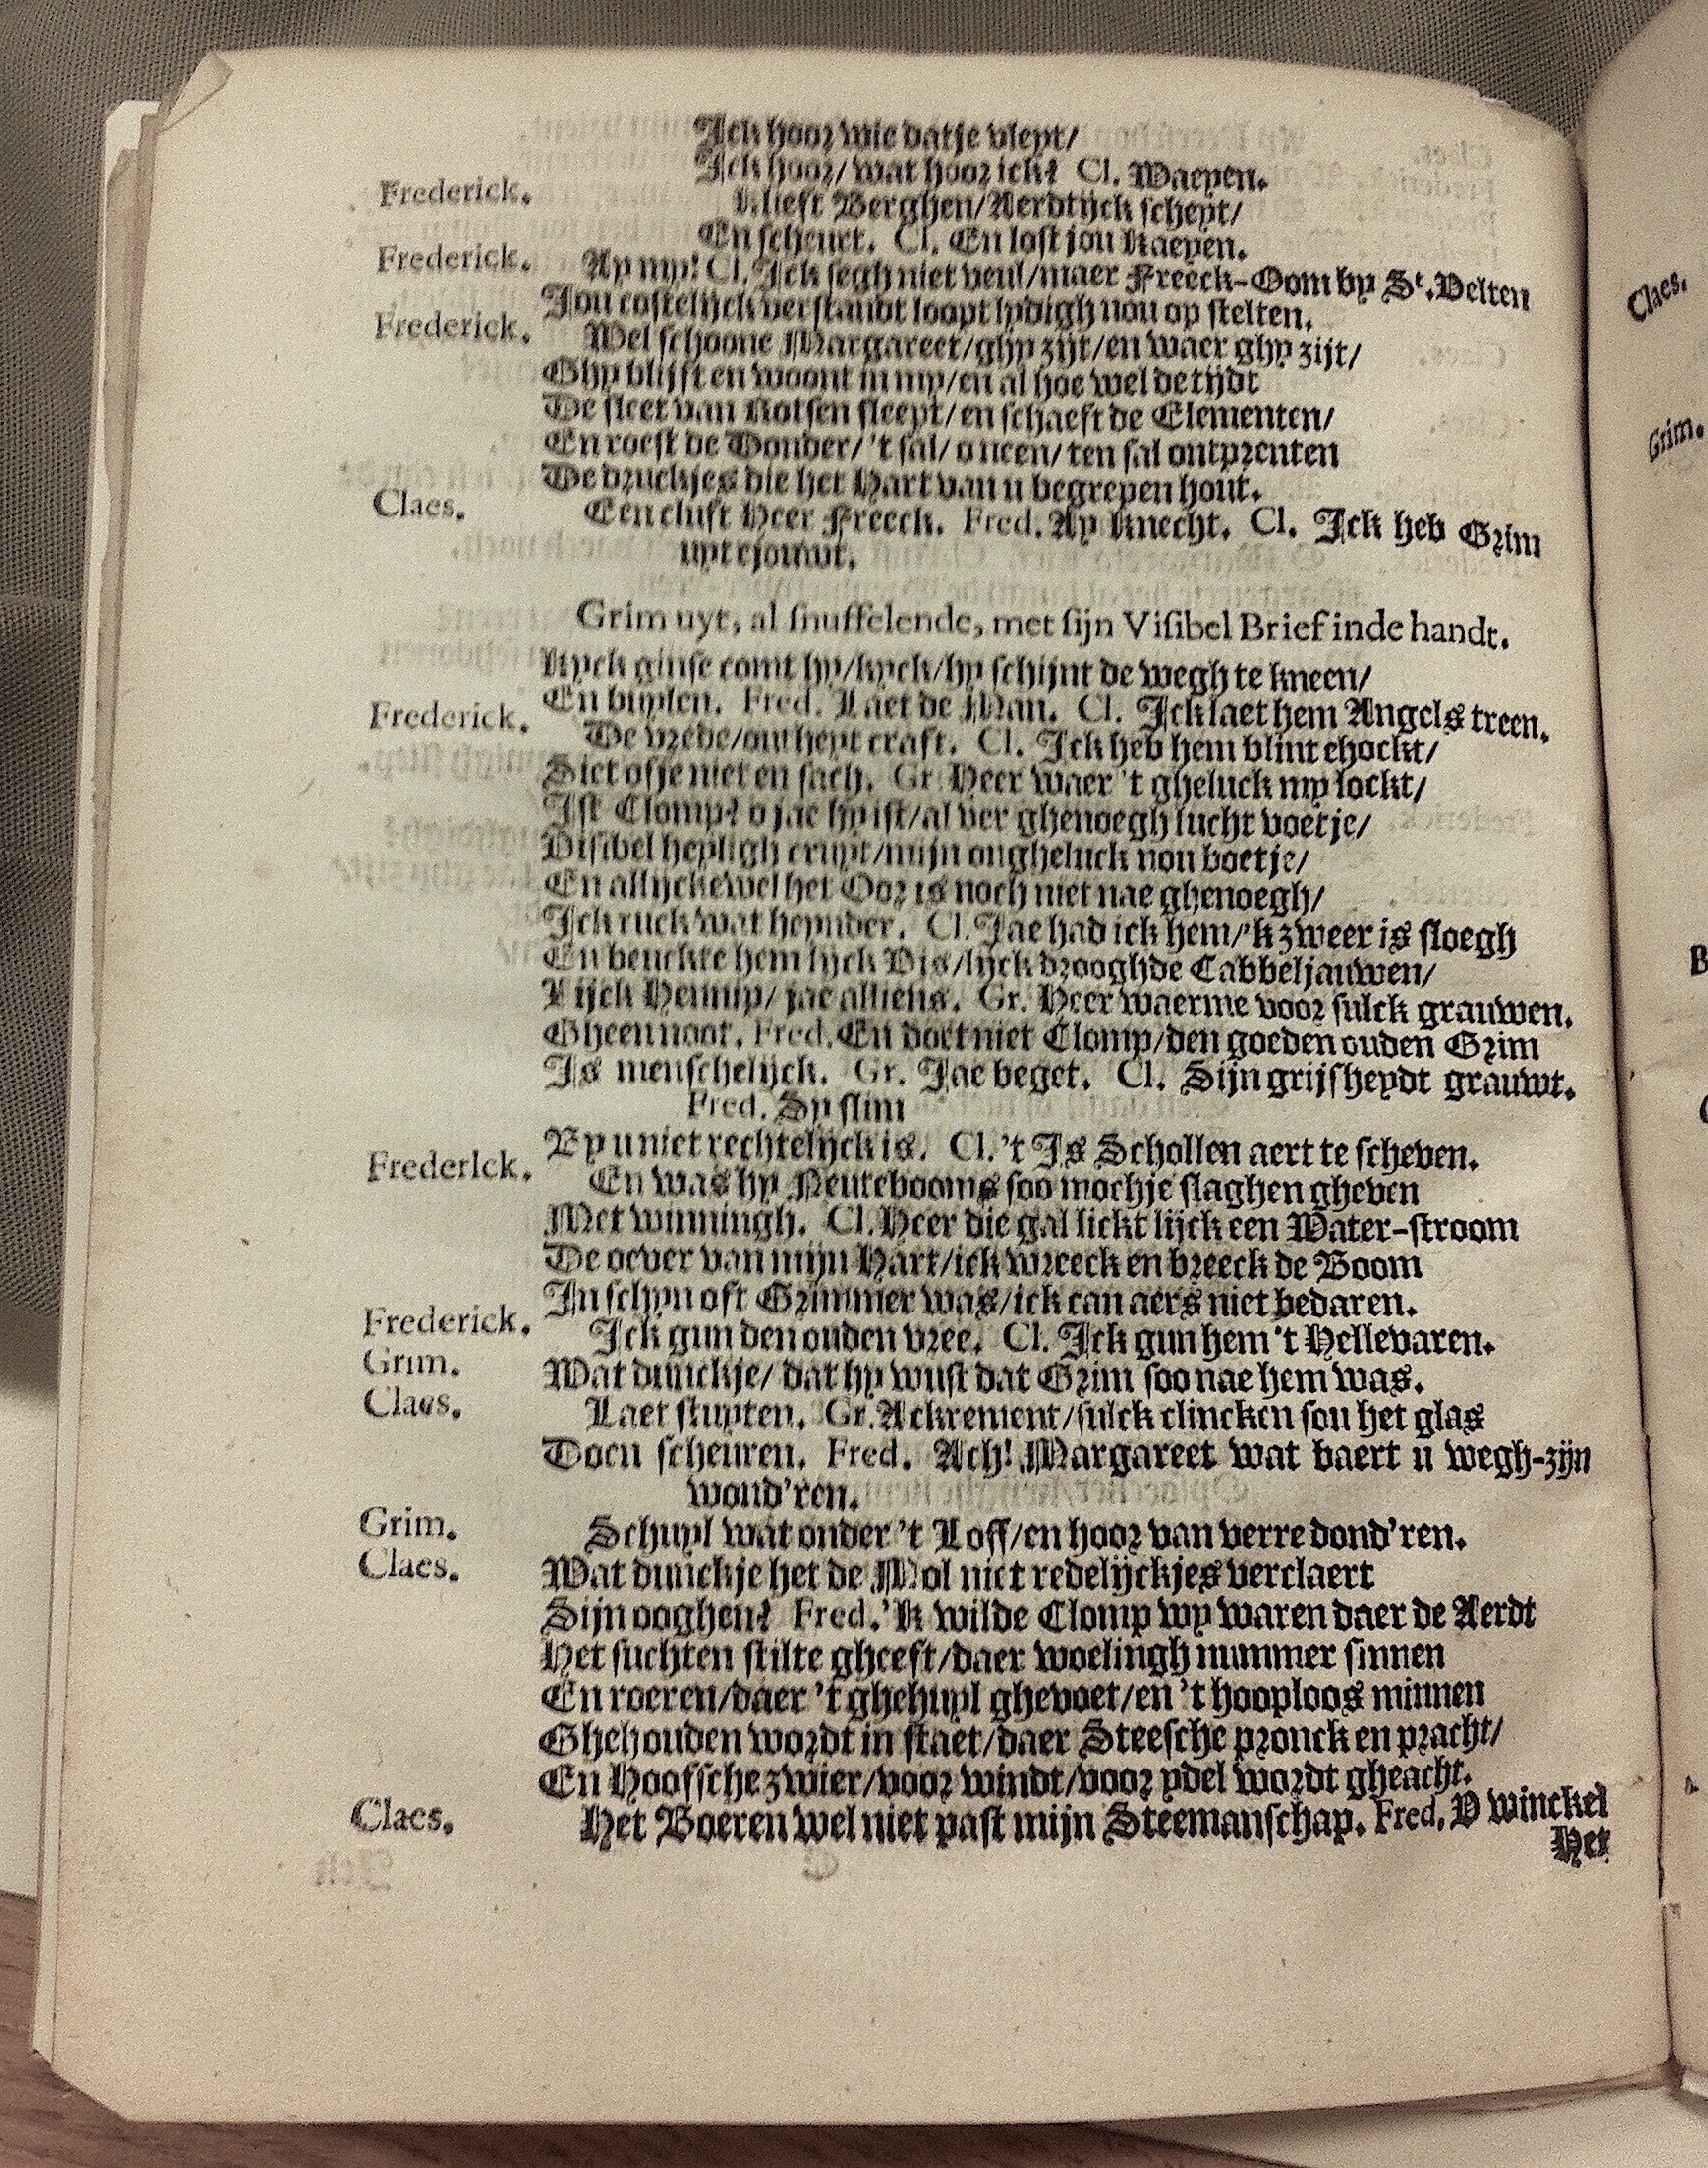 Ick hoor wie datje vleyt/
Ick hoor/ wat hoor ick? Cl. Waepen.
Frederick. Klieft Berghen/ Aerdtijck scheyt/
En scheurt. Cl. En lost jou Kaepen.
Frederick. Ay my! Cl. Ick segh niet veul/ maer Freeck-Oom by St. Velten
Jou costelijck verstandt loopt lydigh nou op stelten.
Frederick. Wel schoone Margareet/ ghy zijt/ en waer ghy zijt/
Ghy blijft en woont in my/ en al hoe wel de tijdt
De sleet van Rotsen sleept/ en schaeft de Elementen/
En roest de Donder/ 't sal/ o neen/ ten sal ontprenten
De druckjes die het Hart van u begrepen hout.
Claes. Een cluft Heer Freeck. Fred. Ay Knecht. Cl. Ick heb Grim
uyt ejouwt.
Grim uyt, al snuffelende, met sijn Visibel Brief inde handt.
Kyck ginse comt hy/ kyck/ hy schijnt de wegh te kneen/
En buylen. Fred. Laet de Man. Cl. Ick laet hem Angels treen.
Frederick. De vrede/ ontheyt craft. Cl. Ick heb hem blint ehockt/
Siet ofje niet en sach. Gr. Heer waer 't gheluck my lockt/
Ist Clomp? o jae hy ist/ al ver ghenoegh lucht voetje/
Visibel heyligh cruyt/ mijn ongheluck nou boetje/
En allyckewel het Oor is noch niet nae ghenoegh/
Ick ruck wat heynder. Cl. Jae had ick hem/ 'k zweer is sloegh
En beuckte hem lyck Vis/ lyck drooghde Cabbeljauwen/
Lijck Hennip/ jae alliens. Gr. Heer waerme voor sulck grauwen.
Gheen noot. Fred. En doet niet Clomp/ den goeden ouden Grim
Is menschelijck. Gr. Jae beget. Cl. Sijn grijsheydt grauwt.
Fred. Sy slim
By u niet rechtelijck is. Cl. 't Is Schollen aert te scheven.
Frederick. En was hy Neutebooms soo mochje slaghen gheven
Met winningh. Cl. Heer die gal lickt lijck een Water-stroom
De oever van mijn Hart/ ick wreeck en breeck de Boom
In schyn oft Grimmer was/ ick can aers niet bedaren.
Frederick. Ick gun den ouden vree. Cl. Ick gun hem 't Hellevaren.
Grim. Wat dunckje/ dat hy wust dat Grim soo nae hem was.
Claes. Laet stuyten. Gr. Ackrement/ sulck clincken sou het glas
Doen scheuren. Fred. Ach! Margareet wat baert u wegh-zijn
wond'ren.
Grim. Schuyl wat onder 't Loff/ en hoor van verre dond'ren.
Claes. Wat dunckje het de Mol niet redelijckjes verclaert
Sijn ooghen? Fred. 'k wilde Clomp wy waren daer de Aerdt
Het suchten stilte gheeft/ daer woelingh nummer sinnen
En roeren/ daer 't ghehuyl ghevoet/ en 't hooploos minnen
Ghehouden wordt in staet/ daer Steesche pronck en pracht/
En Hoofsche zwier/ voor windt/ voor ydel wordt gheacht.
Claes. Het Boeren wel niet past mijn Steemanschap. Fred. O winckel
Het
Claes.
Grim.